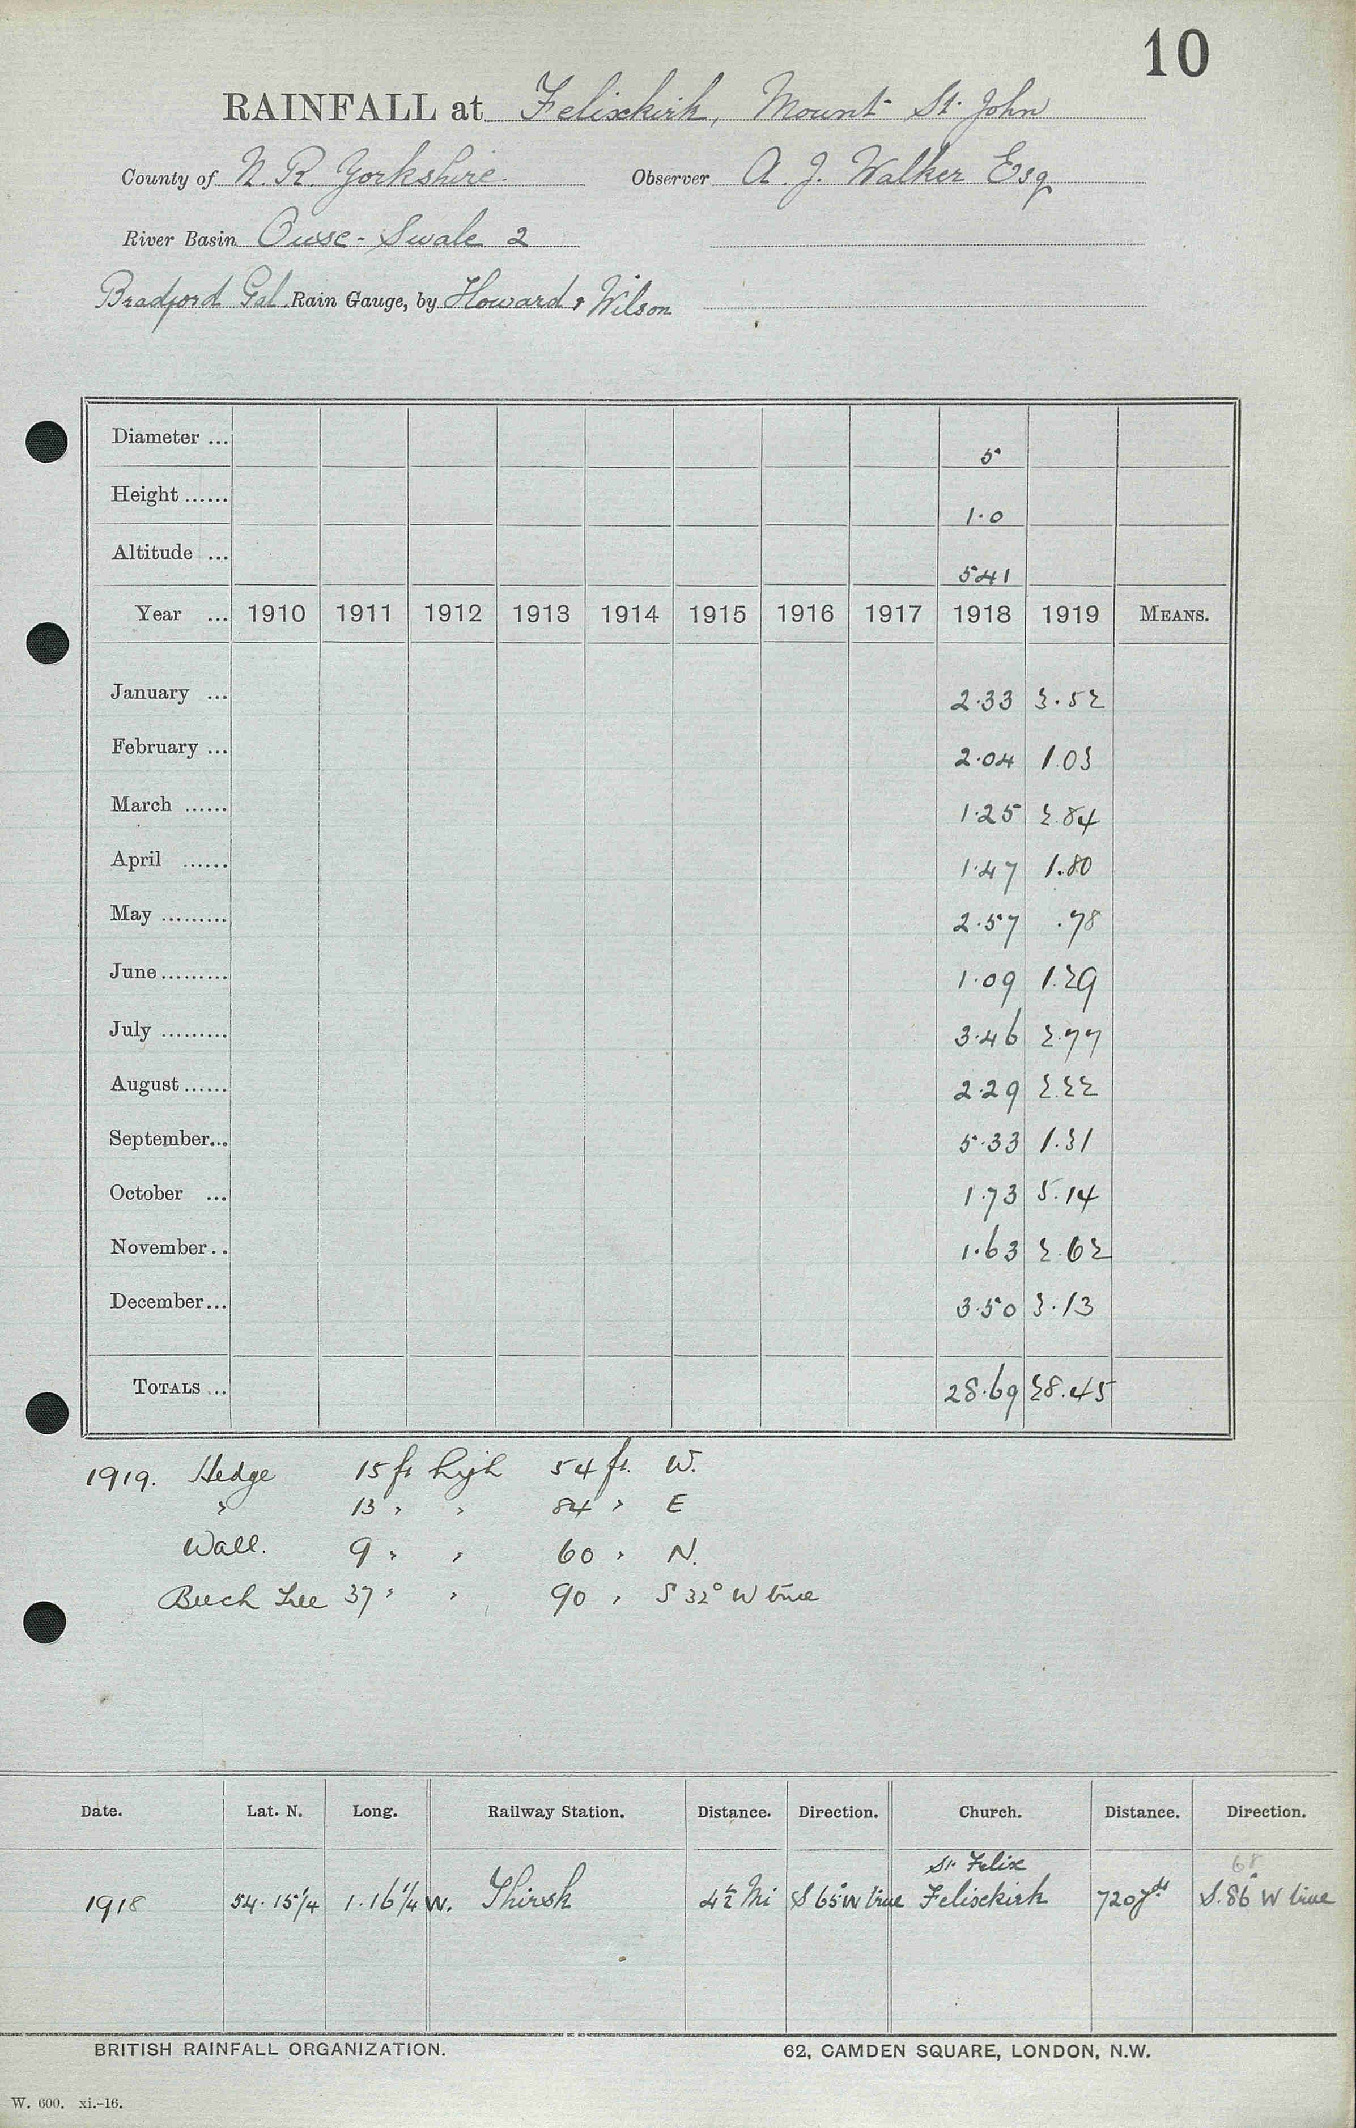 10
RAINFALL at Felixkirk, Mount St. John
County of N. R. Yorkshire. Observer A. J. Walker Esq
River Basin Ouse - Swale 2
Bradford Gal. Rain Gauge, by Howard & Wilson
Diameter ... 5
Height ...... 1.0
Altitude ... 541
Year ... 1910 1911 1912 1913 1914 1915 1916 1917 1918 1919 MEANS.
January ... 2.33 3.52
February ... 2.04 1.03
March ...... 1.25 2.84
April ...... 1.47 1.80
May ......... 2.57 .78
June ......... 1.09 1.29
July ......... 3.46 2.77
August ...... 2.29 2.22
September... 5.33 1.31
October ... 1.73 5.14
November .. 1.63 2.62
December ... 3.50 3.13
TOTALS ... 28.69 28.45
1919. Hedge 15 ft high 54 ft. W.
" 13 " " 84 " E
Wall. 9 " " 60 " N.
Beech Tree 37 " " 90 " S 32° W true
Date. Lat. N. Long. Railway Station. Distance. Direction. Church. Distance. Direction.
St. Felix 68
1918 54.15 1/4 1.16 1/4 W. Thirsk 4 1/2 Mi S 65° W true Felixkirk 720 yds S. 86° W true
BRITISH RAINFALL ORGANIZATION. 62, CAMDEN SQUARE, LONDON, N.W.
W. 600. xi.-16.